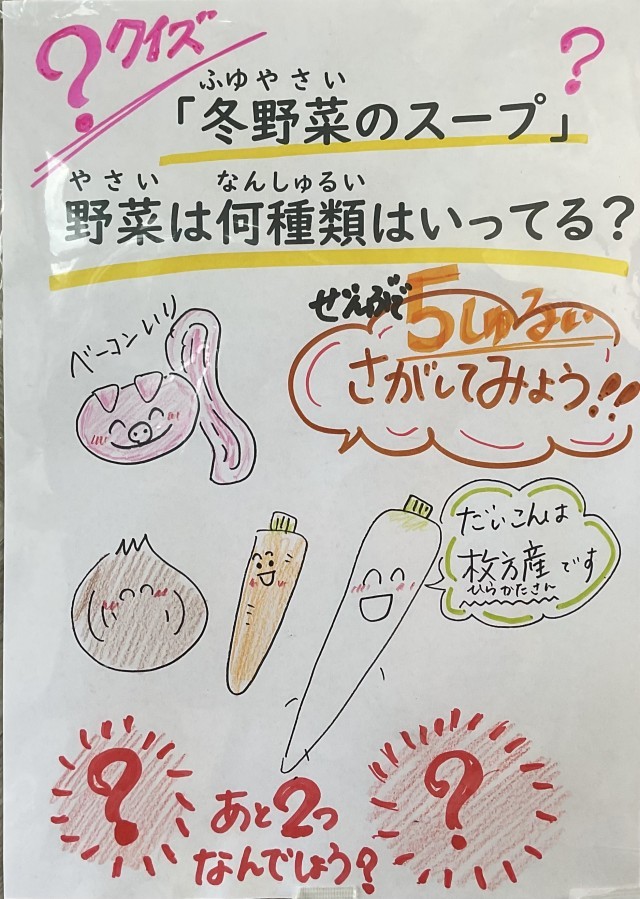 ?クイズ
?
ふゆやさい
「冬野菜のスープ」
やさい なんしゅるい
野菜は何種類はいってる?
ぜんぶで5しゅるい
さがしてみよう!!
ベーコンいり
だいこんは
枚方産です
ひらかたさん
?
?
あと2つ
なんでしょう?